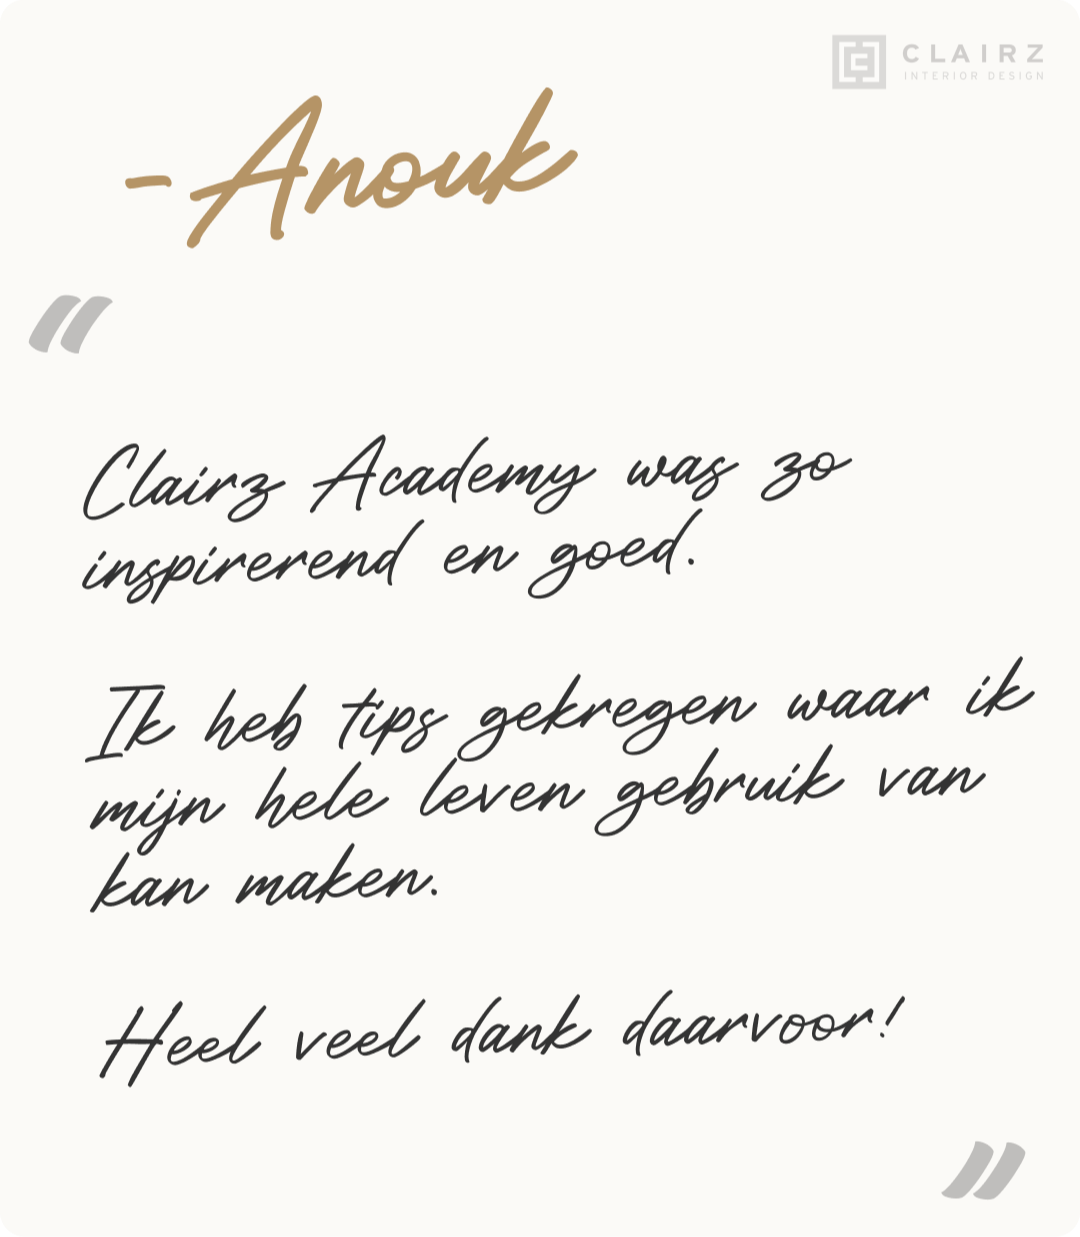 CLAIRZ
INTERIOR DESIGN
-Anouk
“
Clairz Academy was zo
inspirerend en goed.
Ik heb tips gekregen waar ik
mijn hele leven gebruik van
kan maken.
Heel veel dank daarvoor!
”